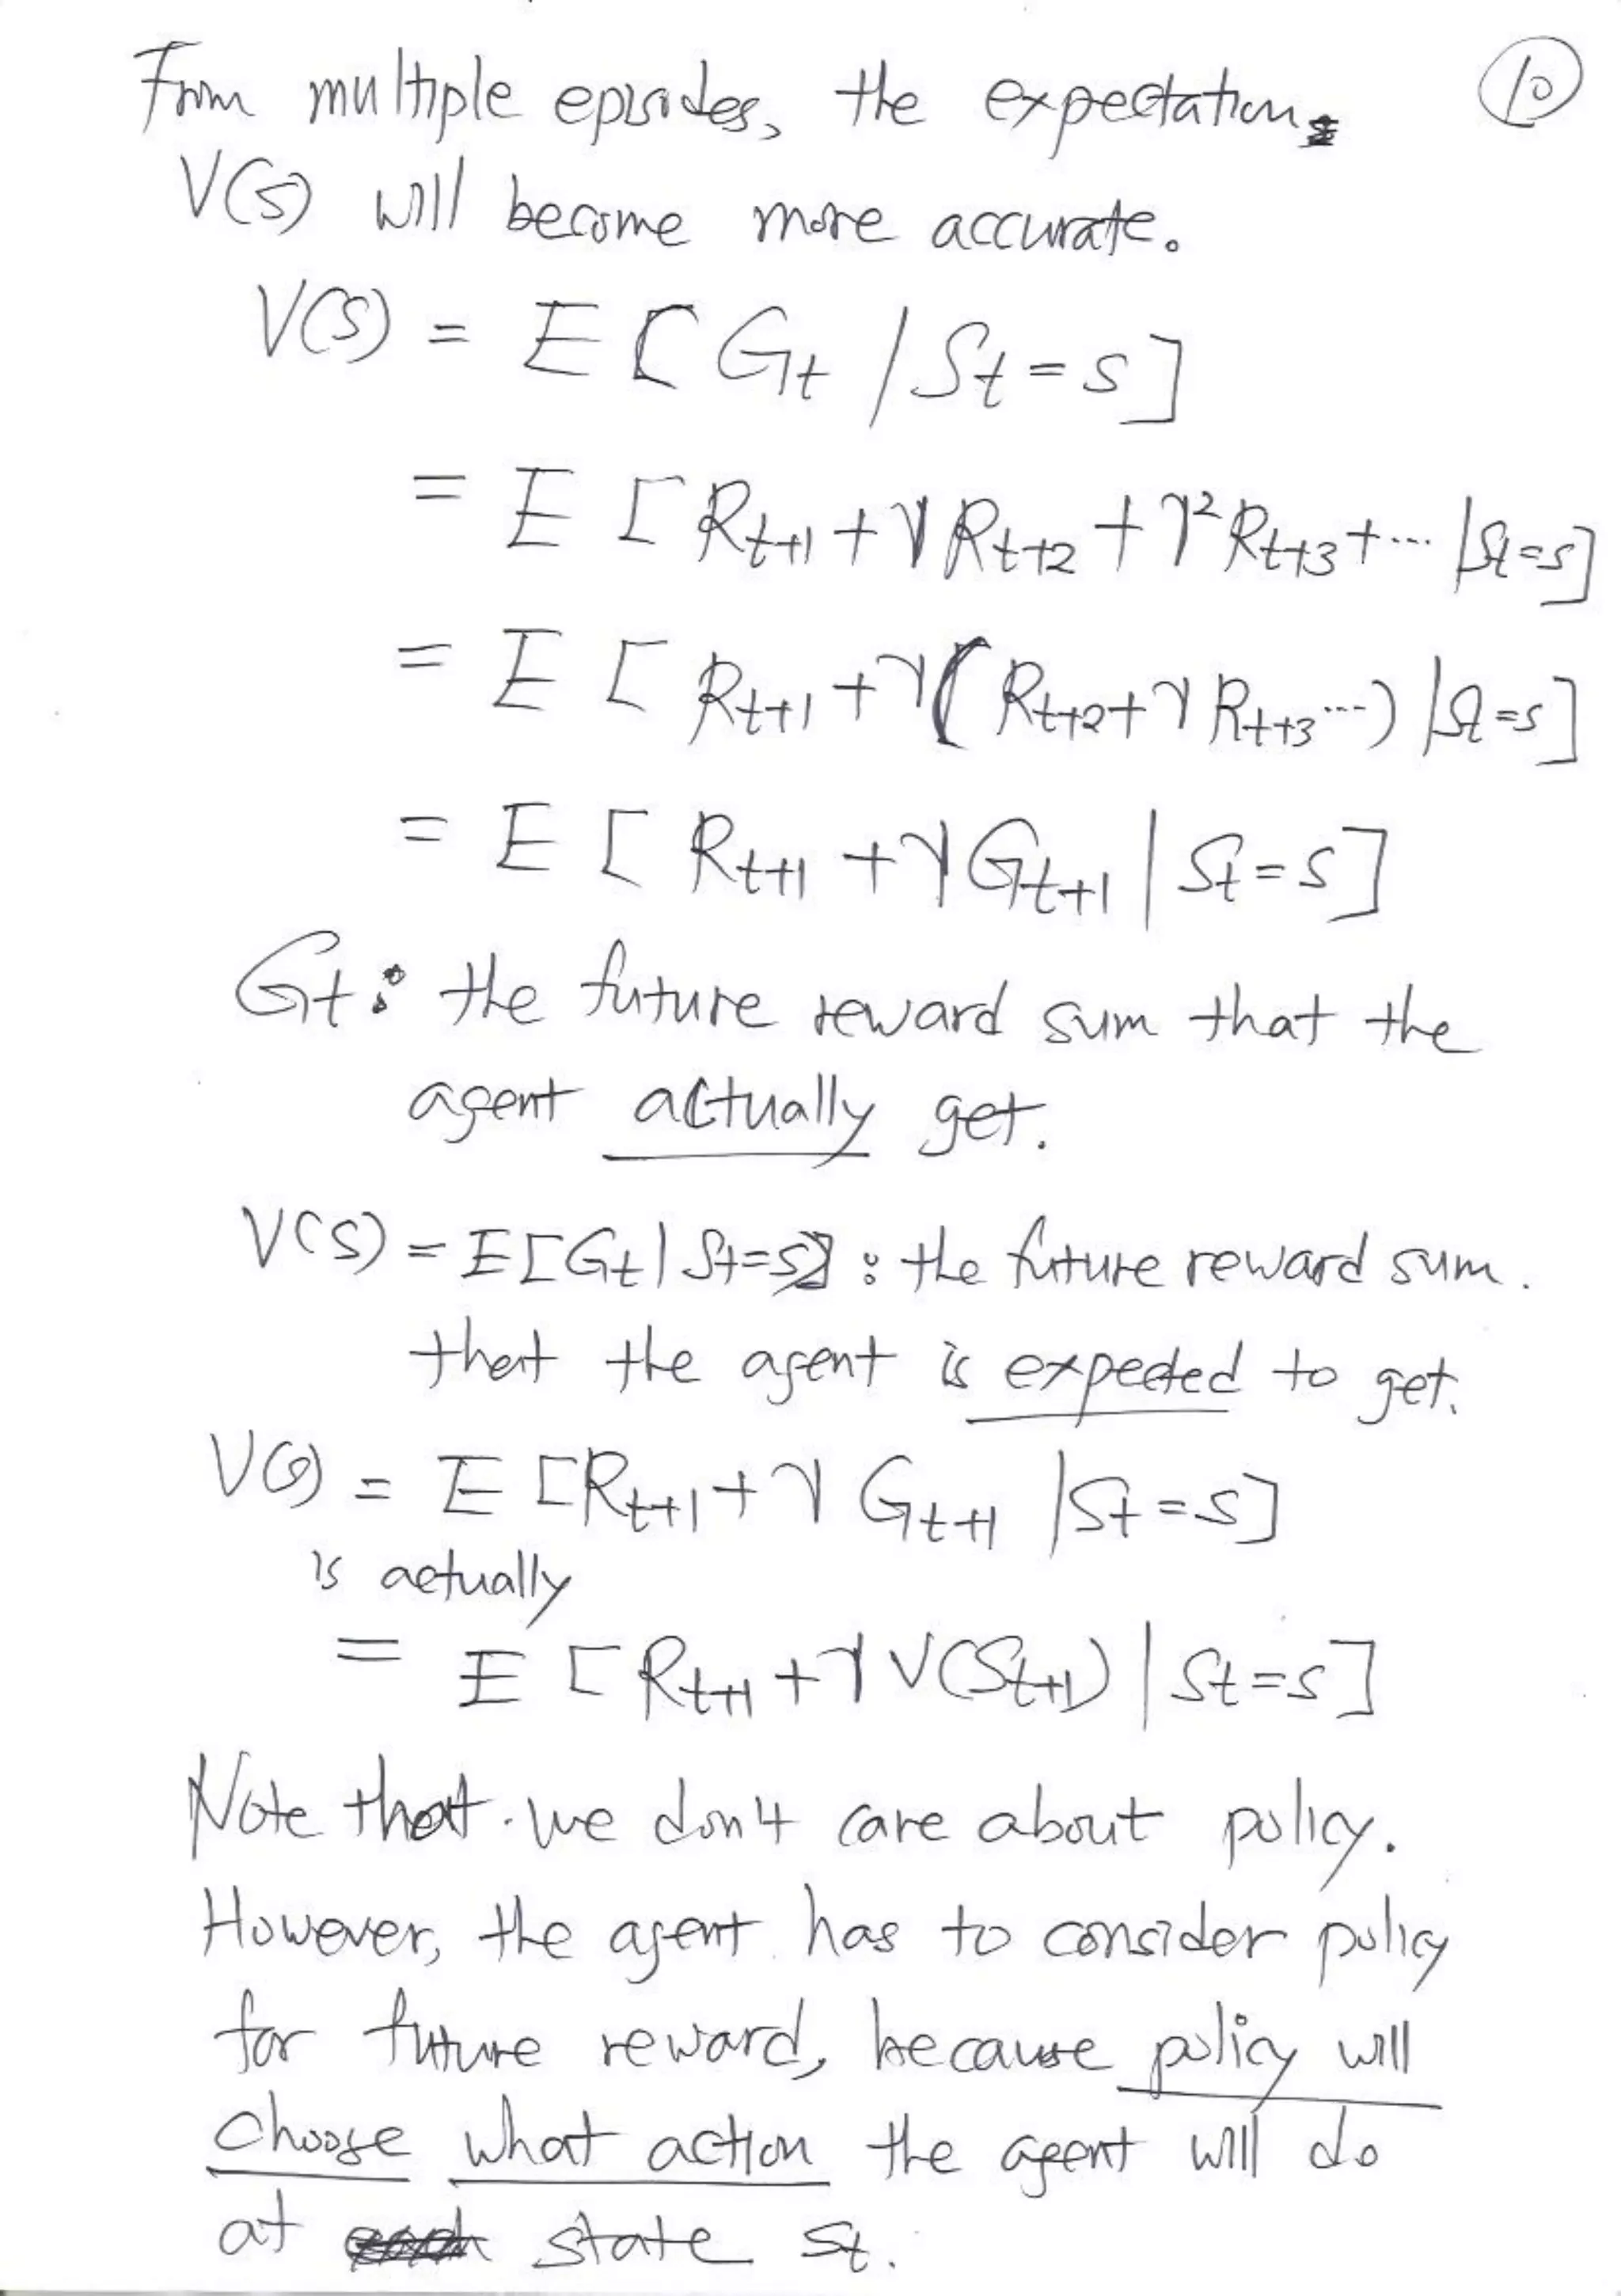 From multiple episodes, the expectation, ⑩
V(s) will become more accurate.
V(s) = E [Gt | St = s]
= E [Rt+1 + γRt+2 + γ²Rt+3 + ... | St=s]
= E [Rt+1 + γ(Rt+2 + γRt+3 ...) | St=s]
= E [Rt+1 + γGt+1 | St=s]
Gt : the future reward sum that the
agent actually get.
V(s) = E[Gt | St=s] : the future reward sum.
that the agent is expected to get.
V(s) = E [Rt+1 + γ Gt+1 | St=s]
is actually
= E [Rt+1 + γV(St+1) | St=s]
Note that we don't care about policy.
However, the agent has to consider policy
for future reward, because policy will
choose what action the agent will do
at state St.